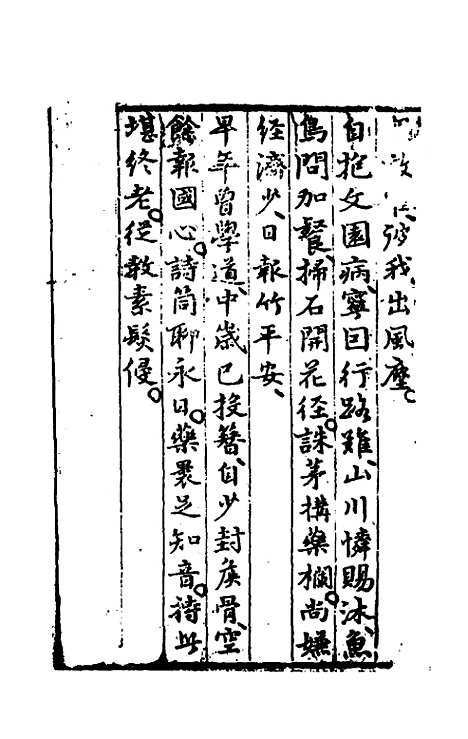 我出風塵
自抱文園病寧因行路難山川憐賜沐魚
鳥問加餐掃石開花徑誅茅搆藥欄尚嫌
經濟少日報竹平安
早年曾學道中歲已投簪自少封侯骨空
餘報國心詩筒聊永日藥裹足知音待此
堪終老從教素髮侵